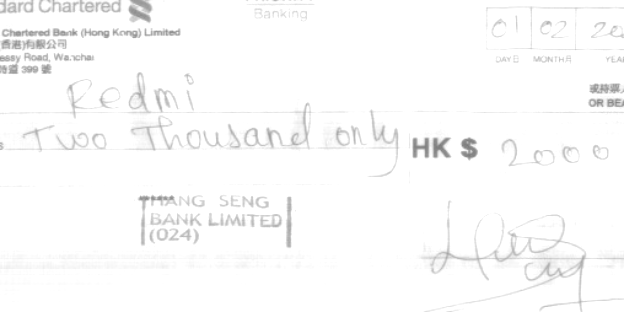 dard Chartered
Banking
Chartered Bank (Hong Kong) Limited
(香港)有限公司
essy Road, Wanchai
399 號
01 02 20
DAY日 MONTH月 YEA
或持票人
OR BEA
Redmi
Two Thousand only
HK $ 2000
HANG SENG
BANK LIMITED
(024)